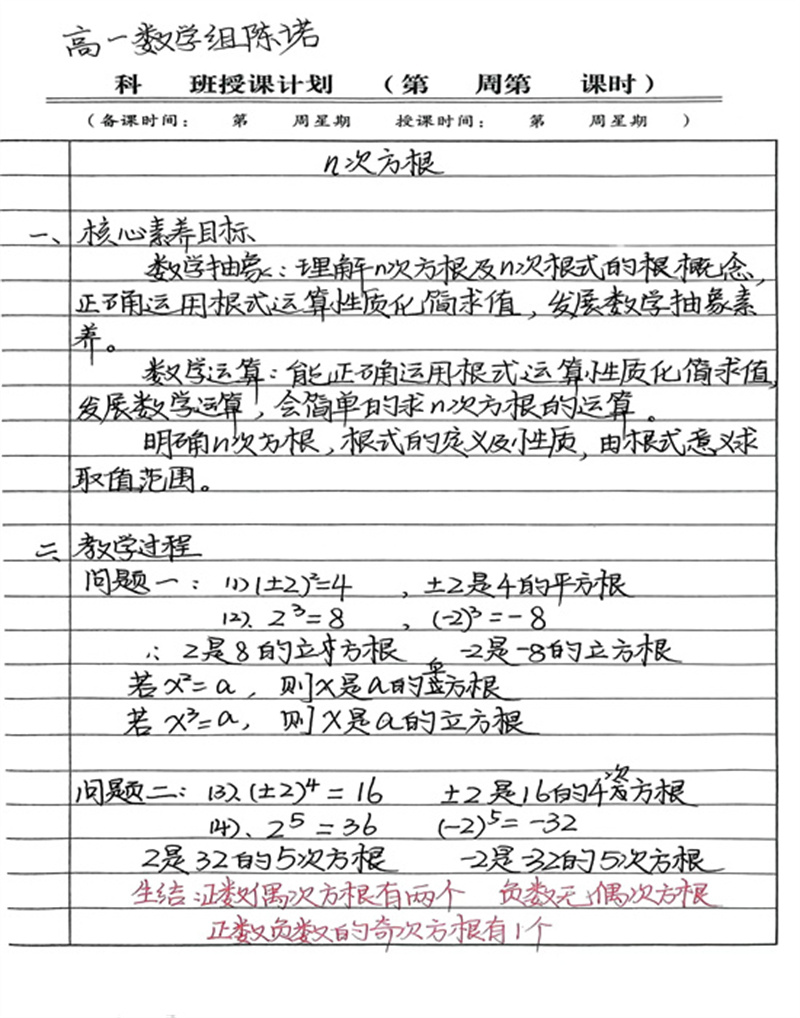 高一数学组陈诺
科 班授课计划 （第 周第 课时）
（备课时间： 第 周星期 授课时间： 第 周星期 ）
n次方根
一、核心素养目标
数学抽象：理解n次方根及n次根式的根概念，
正确运用根式运算性质化简求值，发展数学抽象素
养。
数学运算：能正确运用根式运算性质化简求值，
发展数学运算，会简单的求n次方根的运算。
明确n次方根，根式的定义及性质，由根式意义求
取值范围。
二、教学过程
问题一：(1)(±2)²=4 ，±2是4的平方根
(2)、2³=8 ，(-2)³=-8
∴ 2是8的立方根 -2是-8的立方根
若x²=a，则x是a的平方根
若x³=a，则x是a的立方根
问题二：(3)、(±2)⁴=16 ±2是16的4次方根
(4)、2⁵=36 (-2)⁵=-32
2是32的5次方根 -2是-32的5次方根
生结：正数偶次方根有两个 负数无偶次方根
正数负数的奇次方根有1个